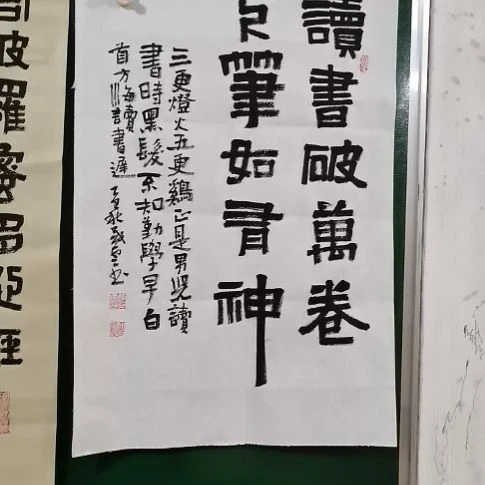 讀書破萬卷
筆如有神
三更燈火五更鷄正是男児讀
書時黑髮不知勤學早白
首方悔讀書遲
波羅蜜多心經